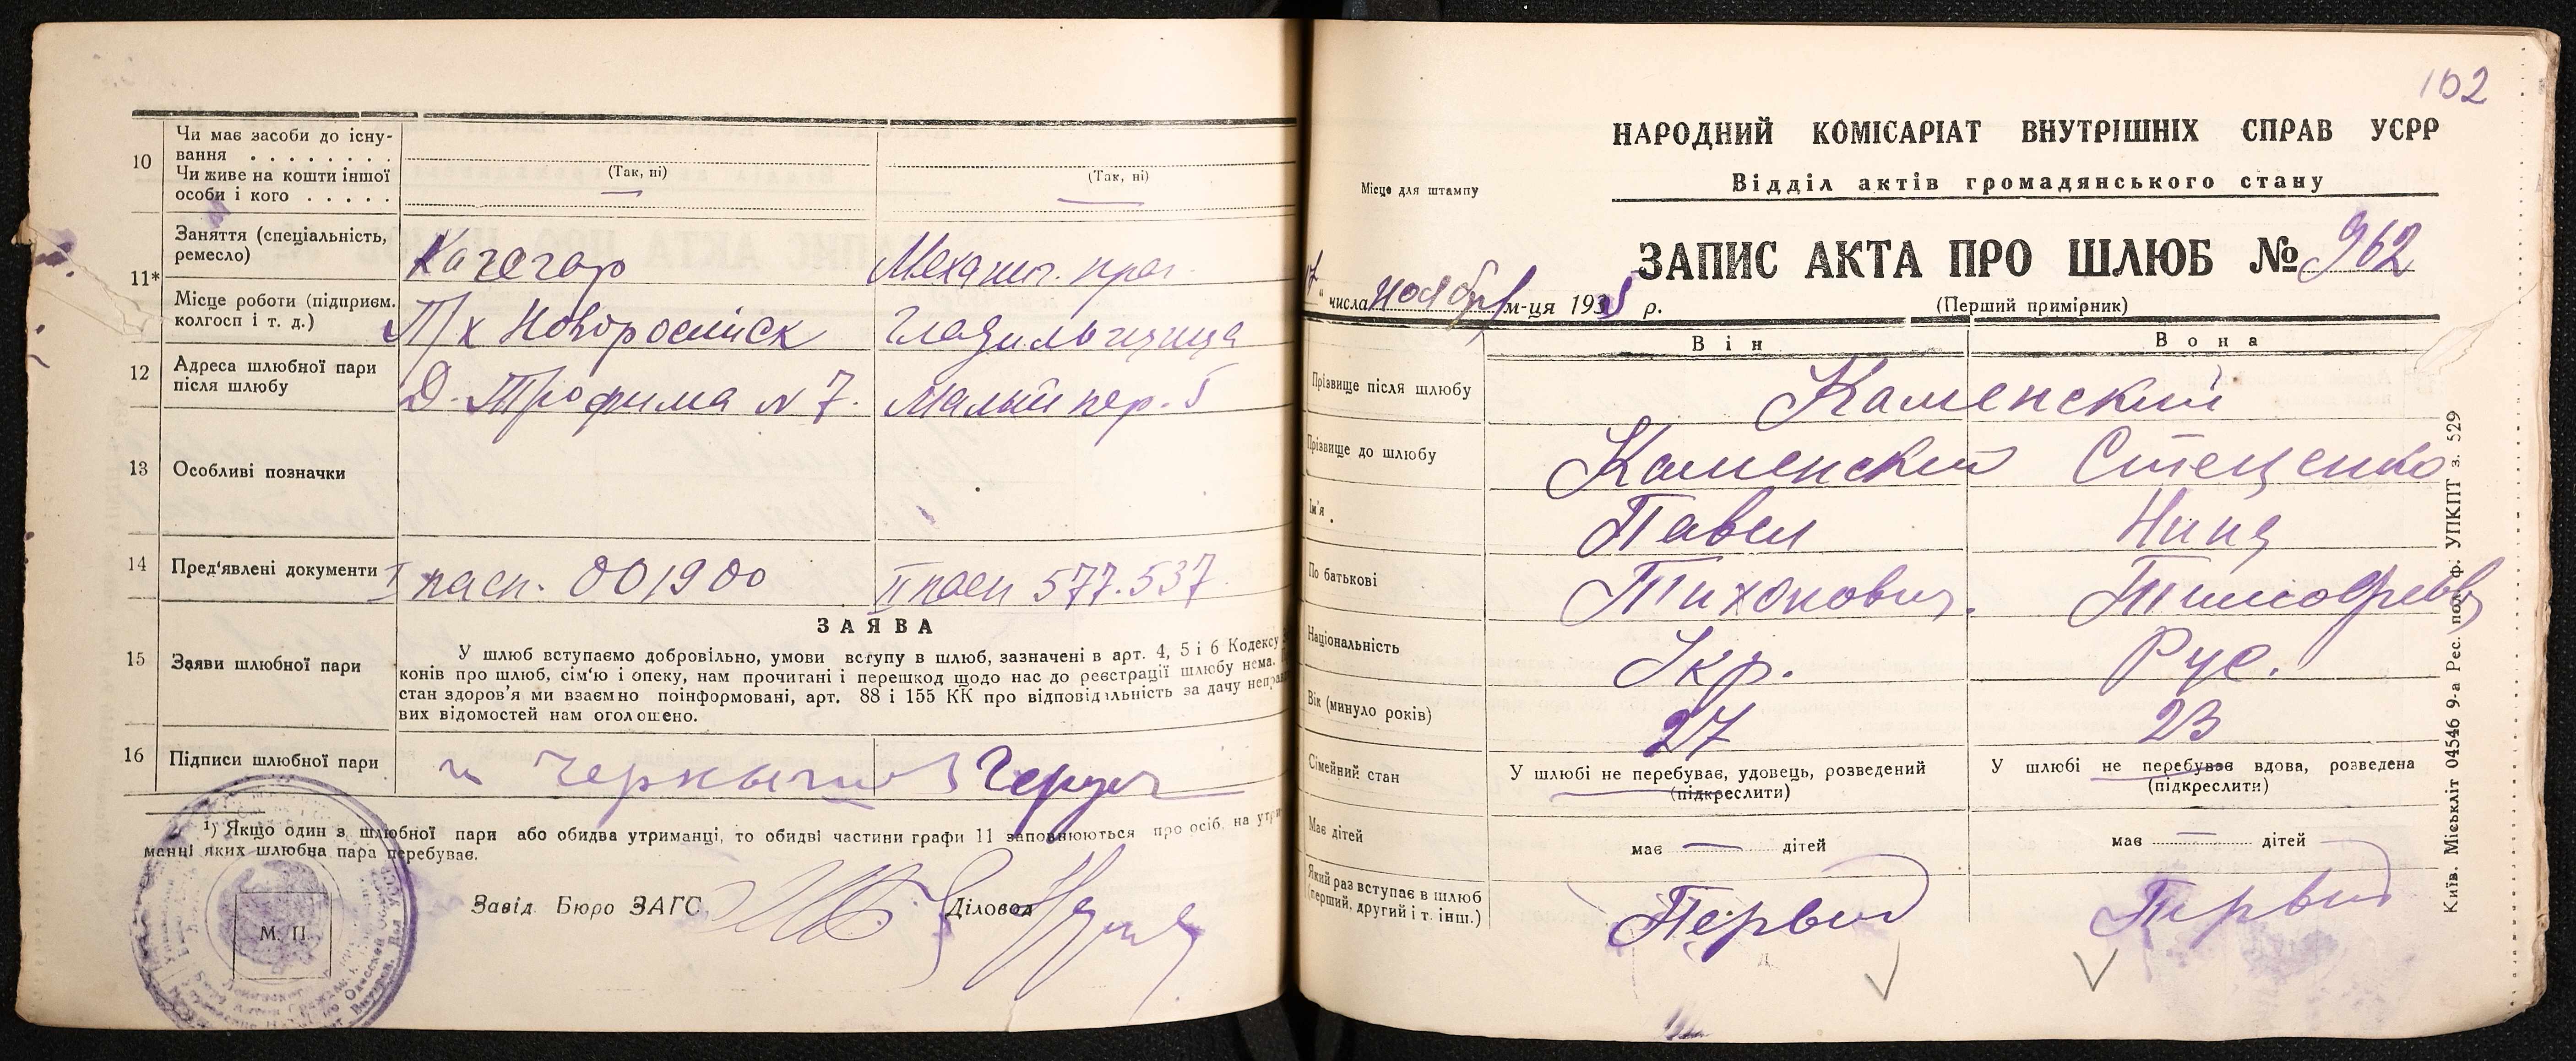 10
Чи має засоби до існу-
вання . . . . . . . .
Чи живе на кошти іншої
особи і кого . . . . .
(Так, ні)
—
(Так, ні)
—
11*
Заняття (спеціальність,
ремесло)
Кочегар
Механич. прач.
Місце роботи (підприєм.
колгосп і т. д.)
Т/х Новоросийск
гладильщица
12
Адреса шлюбної пари
після шлюбу
Д. Трофима N 7.
Малый пер. 5
13
Особливі позначки
14
Пред'явлені документи
I пасп. 001900
II пасп 577.537
15
Заяви шлюбної пари
ЗАЯВА
У шлюб вступаємо добровільно, умови вступу в шлюб, зазначені в арт. 4, 5 і 6 Кодексу
конів про шлюб, сім'ю і опеку, нам прочитані і перешкод щодо нас до реєстрації шлюбу нема.
стан здоров'я ми взаємно поінформовані, арт. 88 і 155 КК про відповідільність за дачу неправ
вих відомостей нам оголошено.
16
Підписи шлюбної пари
¹) Якщо один з шлюбної пари або обидва утриманці, то обидві частини графи 11 заповнюються про осіб, на утри
манці яких шлюбна пара перебуває.
Завід. Бюро ЗАГС
Діловод
М. П.
102
НАРОДНИЙ КОМІСАРІАТ ВНУТРІШНІХ СПРАВ УСРР
Відділ актів громадянського стану
Місце для штампу
ЗАПИС АКТА ПРО ШЛЮБ № 962
" числа ноября м-ця 1935 р.
(Перший примірник)
Він
Вона
Прізвище після шлюбу
Каменский
Прізвище до шлюбу
Каменский
Стеценко
Ім'я .
Павел
Нина
По батькові
Тихонович.
Тимофеевн
Національність
Укр.
Рус.
Вік (минуло років)
27
23
Сімейний стан
У шлюбі не перебуває, удовець, розведений
(підкреслити)
У шлюбі не перебуває вдова, розведена
(підкреслити)
Має дітей
має — дітей
має — дітей
Який раз вступає в шлюб
(перший, другий і т. інш.)
Первый
Первый
Київ. Міськліт 04546 9-а Рес. пол. ф. УПКПТ з. 529